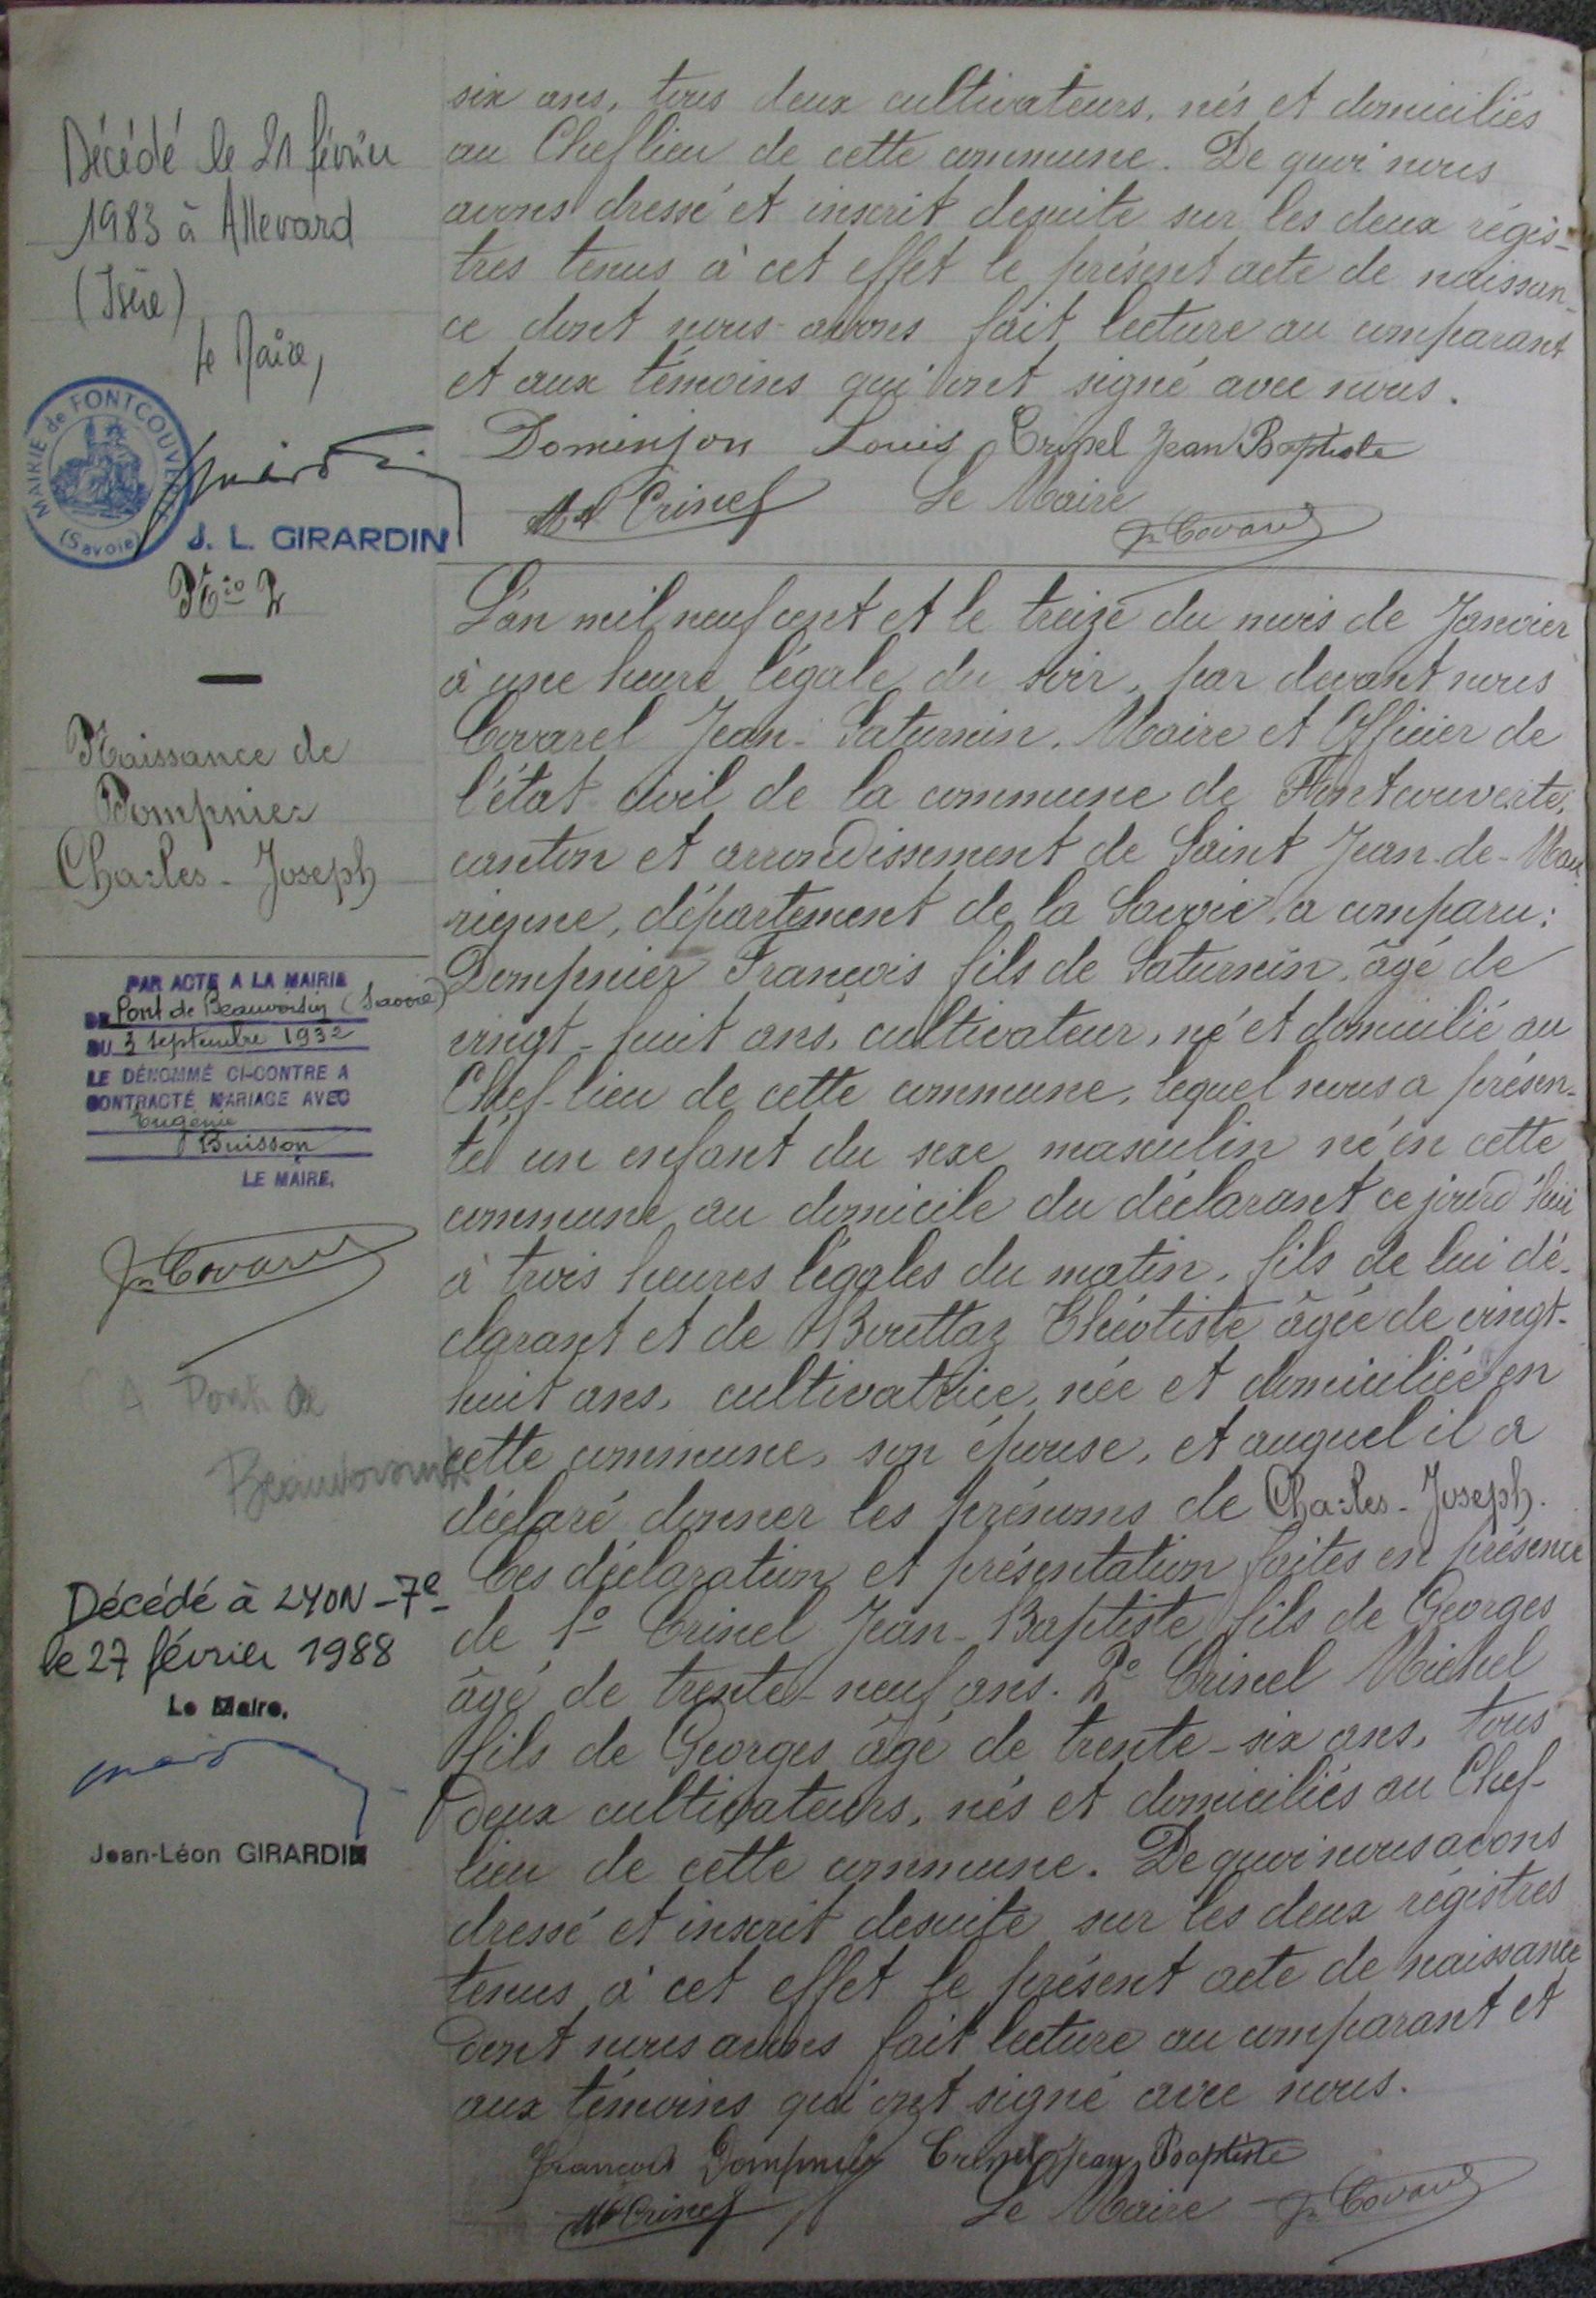 Décédé le 21 février
1983 à Allevard
(Isère)
Le Maire,
MAIRIE de FONTCOUVERTE
(Savoie)
J. L. GIRARDIN
six ans, tous deux cultivateurs, nés et domiciliés
au Chef lieu de cette commune. De quoi nous
avons dressé et inscrit desuite sur les deux régis-
tres tenus à cet effet le présent acte de naissan-
ce dont nous avons fait lecture au comparant
et aux témoins qui ont signé avec nous.
Dominjon Louis Crinel Jean Baptiste
M Crinel Le Maire
Jn Covarel
Nio 2
Naissance de
Dompnier
Charles-Joseph
PAR ACTE A LA MAIRIE
DE Pont de Beauvoisin (Savoie)
DU 3 septembre 1932
LE DÉNOMMÉ CI-CONTRE A
CONTRACTÉ MARIAGE AVEC
Eugénie
Buisson
LE MAIRE,
Jn Covarel
A Pont de
Beauvoisin
Décédé à LYON-7e
le 27 février 1988
Le Maire.
Jean-Léon GIRARDIN
L'an mil neuf cent et le treize du mois de Janvier
à une heure légale du soir, par devant nous
Covarel Jean-Saturnin, Maire et Officier de
l'état civil de la commune de Fontcouverte,
canton et arrondissement de Saint Jean-de-Mau-
rienne, département de la Savoie, a comparu:
Dompnier François fils de Saturnin, âgé de
vingt-huit ans, cultivateur, né et domicilié au
Chef-lieu de cette commune, lequel nous a présen-
té un enfant du sexe masculin né en cette
commune au domicile du déclarant ce jourd'hui
à trois heures légales du matin, fils de lui dé-
clarant et de Bouttaz Théotiste âgée de vingt-
huit ans, cultivatrice, née et domiciliée en
cette commune, son épouse, et auquel il a
déclaré donner les prénoms de Charles-Joseph.
Ces déclaration et présentation faites en présence
de 1o Crinel Jean-Baptiste fils de Georges
âgé de trente-neuf ans. 2o Crinel Michel
fils de Georges âgé de trente-six ans, tous
deux cultivateurs, nés et domiciliés au Chef-
lieu de cette commune. De quoi nous avons
dressé et inscrit desuite sur les deux régistres
tenus à cet effet le présent acte de naissance
dont nous avons fait lecture au comparant et
aux témoins qui ont signé avec nous.
François Dompnier Crinel Jean Baptiste
M Crinel Le Maire Jn Covarel